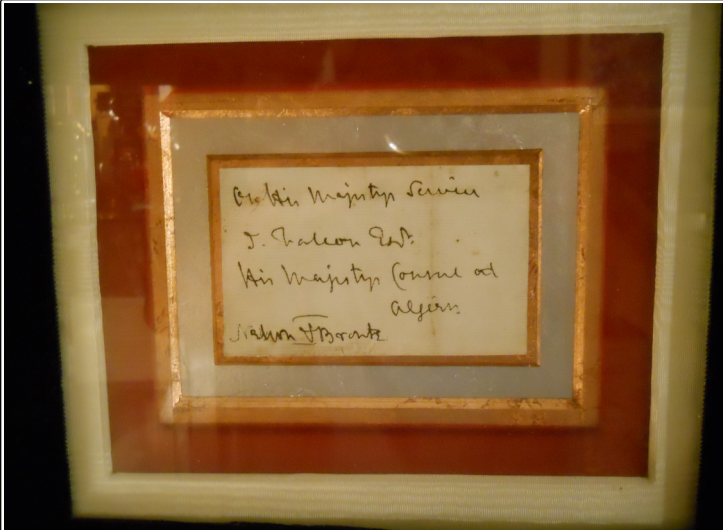 On His Majestys Service
J. Falcon Esqr.
His Majestys Consul at
Algiers
Nelson & Bronte